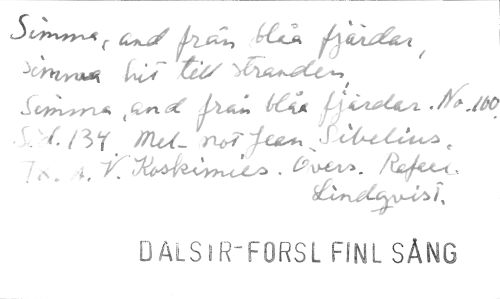 Simma, and från blåa fjärdar,
simma hit till stranden
Simma, and från blåa fjärdar. No. 100.
S. 134 Mel- not Jean Sibelius.
A. V. Koskimies. Övers. Rafael
Lindqvist.
DALSIR-FORSL FINL SÅNG